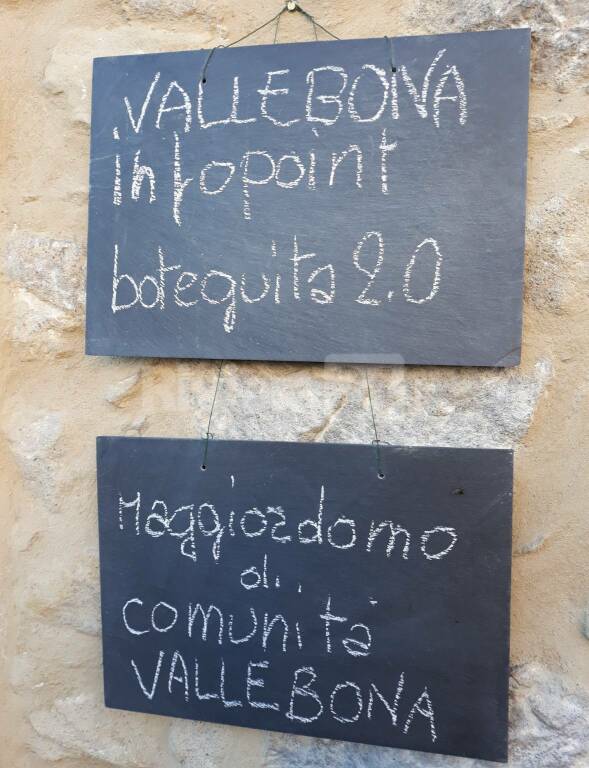 VALLEBONA
infopoint
botequita 2.0
Maggiordomo
di
comunità
VALLEBONA